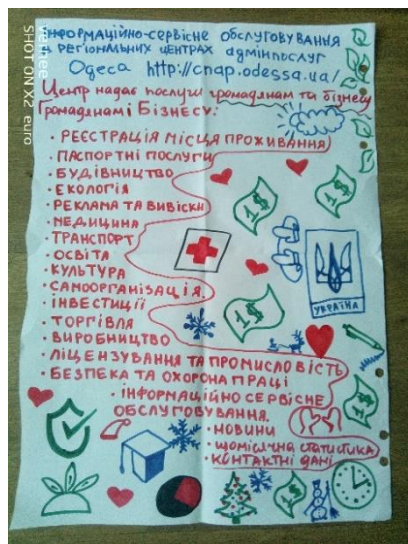 Інформаційно-сервісне обслуговування
в регіональних центрах адмінпослуг
Одеса http://cnap.odessa.ua/
Центр надає послуги громадянам та бізнесу
Громадянамі Бізнесу:
· Реєстрація місця проживання
· Паспортні послуги
· Будівництво
· Екологія
· Реклама та вивіски
· Медицина
· Транспорт
· Освіта
· Культура
· Самоорганізація.
· Інвестиції
· Торгівля
· Виробництво
· Ліцензування та промисловість
· Безпека та охорона праці
· Інформаційно сервісне
обслуговування.
· Новини
· Щомісячна статистика
· Контактні дані
1$
1$
1$
1$
1$
УКРАЇНА
vernee
SHOT ON X2 euro